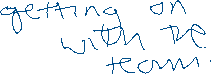 getting on
with the
team.